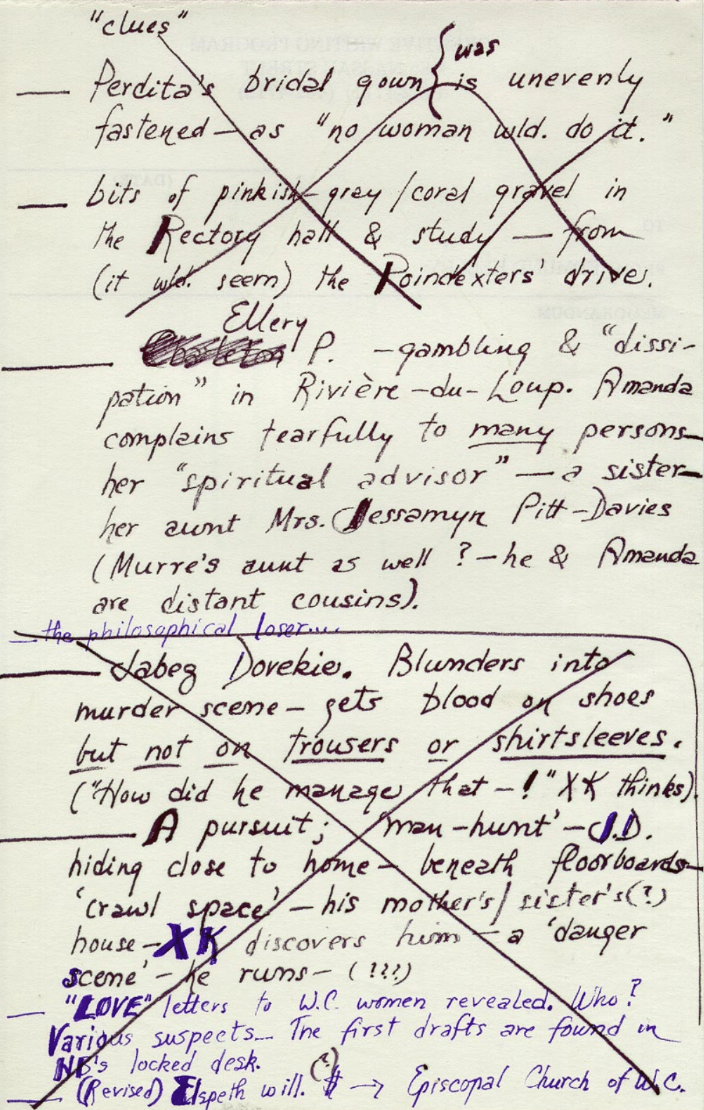 "clues"
was
— Perdita's bridal gown { is unevenly
fastened — as "no woman wld. do it."
— bits of pinkish-gray/coral gravel in
the Rectory hall & study — from
(it wld. seem) the Poindexters' drive.
Ellery
— P. — gambling & "dissi-
pation" in Rivière-du-Loup. Amanda
complains tearfully to many persons —
her "spiritual advisor" — a sister —
her aunt Mrs. Jessamyn Pitt-Davies
(Murre's aunt as well? — he & Amanda
are distant cousins).
— the philosophical loser....
— Jabez Dovekie. Blunders into
murder scene — gets blood on shoes
but not on trousers or shirtsleeves.
("How did he manage that — !" XK thinks).
— A pursuit; 'man-hunt' — J.D.
hiding close to home — beneath floorboards —
'crawl space' — his mother's/sister's(?)
house — XK discovers him — a 'danger
scene' — he runs — (???)
— "LOVE" letters to W.C. women revealed. Who?
Various suspects — The first drafts are found in
NB's locked desk.
(?)
— (Revised) Elspeth will. $ → Episcopal Church of W.C.